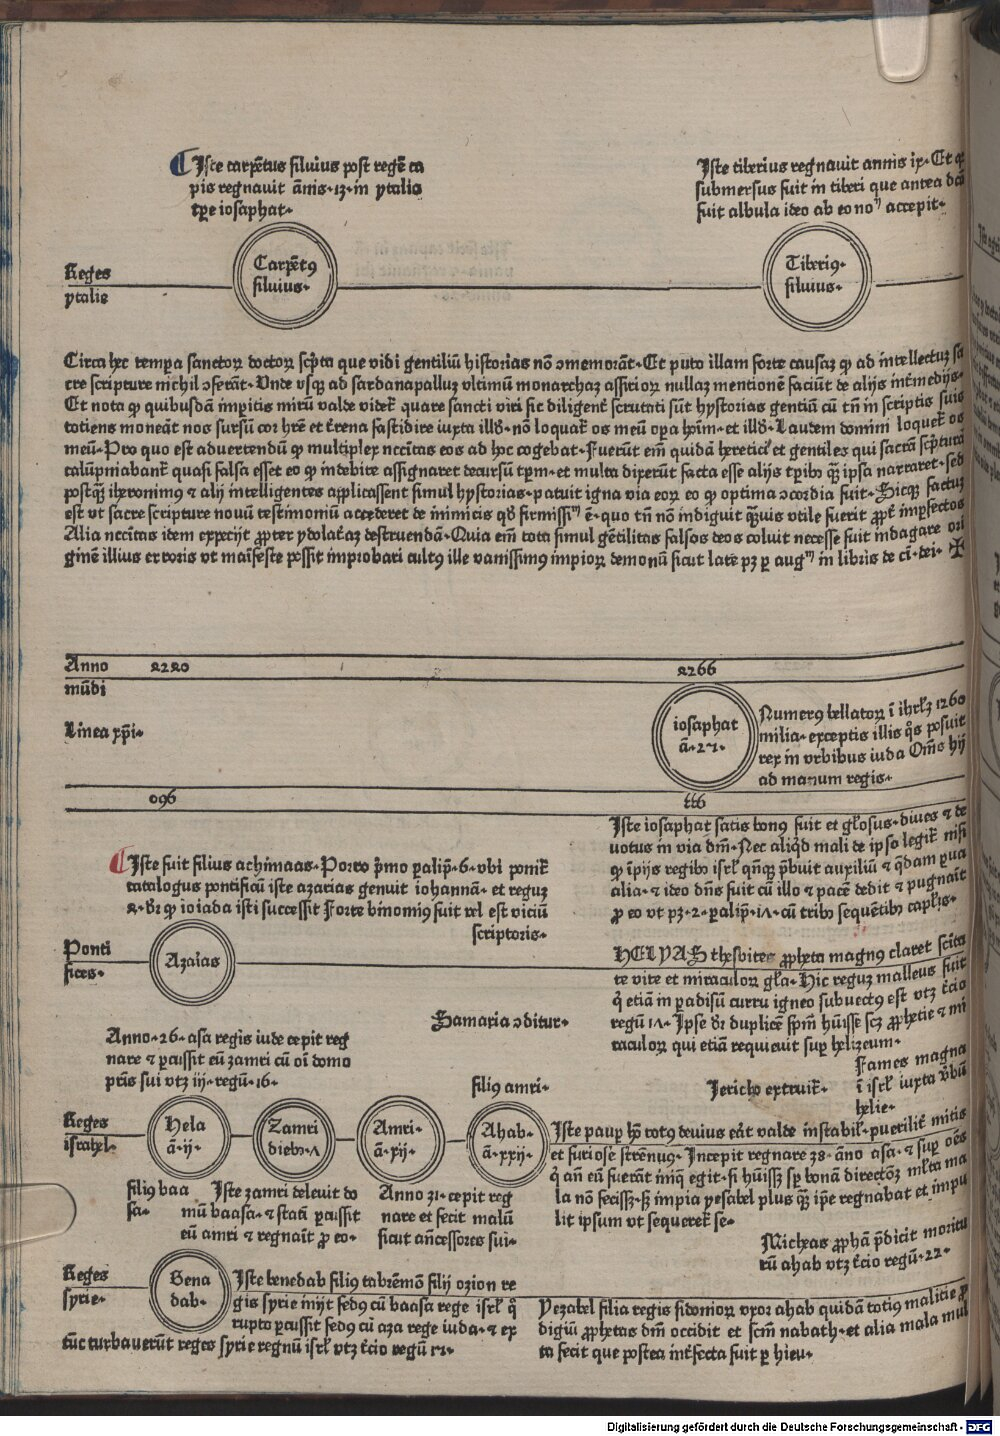 Iste carpẽtus siluius post regẽ ca
pis regnauit ãnis·13·in ytalia
tp̃e iosaphat·
Iste tiberius regnauit annis ix·Et qꝛ
submersus fuit in tiberi que antea dcã
fuit albula ideo ab eo noᷠ accepit·
Reges
ytalie
Carpẽtꝰ
siluius·
Tiberiꝰ·
siluius·
Circa hec tempa sanctoꝝ doctoꝝ sc̃pta que vidi gentiliũ historias nõ ↄmemorãt·Et puto illam forte causaꝫ ꝙ ad intellectuꝫ sa
cre scripture nichil ↄferãt·Unde vsqꝫ ad sardanapalluꝫ vltimũ monarchaꝫ assirioꝝ nullaꝫ mentionẽ faciũt de alijs int̃medijs·
Et nota ꝙ quibusdã impitis mirũ valde videt̃ quare sancti viri sic diligent̃ scrutati sũt hystorias gentiũ cũ tñ in scriptis suis
totiens moneãt nos sursũ cor hr̃e et t̃rena fastidire iuxta illð·nõ loquat̃ os meũ opa hoĩm·et illð·Laudem domini loquet̃ os
meũ·Pro quo est aduertendũ ꝙ multiplex nc̃citas eos ad hoc cogebat·Fuerũt em̃ quidã heretici et gentiles qui sacrã sc̃pturã
calũpniabant̃ quasi falsa esset eo ꝙ indebite assignaret decursũ tꝑm·et multa dixerũt facta esse alijs tꝑibꝰ qᷓꝫ ipsa narraret·sed
postqᷓꝫ iheronimꝰ ⁊ alij intelligentes applicassent simul hystorias·patuit igna via eoꝝ eo ꝙ optima ↄcordia fuit·Sicqꝫ factuꝫ
est vt sacre scripture nouũ testimoniũ accederet de inimicis qð firmissiᷠ ẽ·quo tñ nõ indiguit qᷓꝫuis vtile fuerit ꝓpt̃ imꝑfectos
Alia nc̃citas idem expecijt ꝓpter ydolat̃aꝫ destruendã·Quia em̃ tota simul gẽtilitas falsos deos coluit necesse fuit indagare ori
ginẽ illius erroris vt maĩfeste possit improbari cultꝰ ille vanissimꝰ impioꝝ demonũ sicut late pꝫ ꝑ augᷠ in libris de ci·dei·
Anno
mũdi
2220
2266
Linea xp̃i·
iosaphat
ã·27·
Numerꝰ bellatoꝝ ĩ ihrl̃ꝫ 1260
milia·exceptis illis qͦs posuit
rex in vrbibus iuda Om̃s hij
ad manum regis·
096
Iste iosaphat satis bonꝰ fuit et gl̃osus·diues ⁊ de
uotus in via dñi·Nec aliqͥd mali de ipso legit̃ nisi
ꝙ ĩpijs regibꝰ isrl̃ qñqꝫ p̃buit auxiliũ ⁊ qᷓdam ꝑua
alia·⁊ ideo dñs fuit cũ illo ⁊ pacẽ dedit ⁊ pugnaĩt
ꝓ eo vt pꝫ·2·palip̃·17·cũ tribꝰ sequẽtibꝰ capl̃is·
Iste fuit filius achimaas·Porro p̃mo palip̃·6·vbi ponit̃
catalogus pontificũ iste azarias genuit iohannã·et reguꝫ
2·ðr ꝙ ioiada isti successit Forte binomiꝰ fuit vel est viciũ
scriptoris·
Ponti
fices·
Azaias
HELYAS thesbites ꝓpheta magnꝰ claret sc̃ita
te vite et miraculoꝝ gl̃a·Hic reguꝫ malleus fuit
qͥ etiã in padisũ curru igneo subuectꝰ est vtꝫ t̃cio
regũ 17·Ipse ðr duplicẽ sp̃m hũisse scꝫ ꝓphetie ⁊ mi
raculoꝝ qui etiã requieuit suꝑ helizeum·
Samaria ↄditur·
Anno·26·asa regis iude cepit reg
nare ⁊ ꝑcussit eũ zamri cũ oĩ domo
pris sui vtꝫ iij·regũ·16·
filiꝰ amri·
Jericho extruit̃·
Fames magna
ĩ isrl̃ iuxta v̾bũ
helie·
Reges
israhel·
Hela
ã·ij·
Zamri
diebꝰ·7
Amri·
ã·xij·
Ahab·
ã·xxij·
Iste pauꝑ hõ totꝰ deuius eãt valde instabil̃·puerilit̃ mitis
et furiose strẽnuꝰ·Incepit regnare 38·ãno asa·⁊ suꝑ oẽs
qͥ añ eũ fuerãt inĩqͥ egit·si hũissꝫ sꝑ bonã directõꝫ ml̃ta ma
la nõ fecissꝫ·sꝫ impia yesabel plus qᷓꝫ ip̃e regnabat et impu
lit ipsum vt sequeret̃ se·
filiꝰ baa
sa·
Iste zamri deleuit do
mũ baasa·⁊ statĩ ꝑcussit
eũ amri ⁊ regnaĩt ꝓ eo·
Anno 31·cepit reg
nare et fecit malũ
sicut añcessores sui·
Micheas ꝓph̃a p̃dicit moritu
rũ ahab vtꝫ t̃cio regũ·22·
Reges
syrie·
Bena
dab·
Iste benedab filiꝰ tabrẽmõ filij ozion re
gis syrie inijt fedꝰ cũ baasa rege isrl̃ qͦ
rupto ꝑcussit fedꝰ cũ aza rege iuda·⁊ ex
tũc turbauerũt reges syrie regnũ isrl̃ vtꝫ t̃cio regũ 15·
Yezabel filia regis sidonioꝝ vxor ahab quidã totiꝰ malicie ꝓ
digiũ ꝓphetas dñi occidit et sc̃m nabath·et alia mala mul
ta fecit que postea int̃fecta fuit ꝑ hieu·
Digitalisierung gefördert durch die Deutsche Forschungsgemeinschaft - DFG